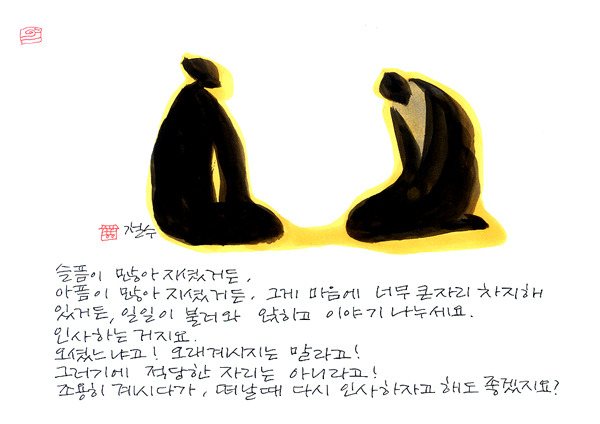 철수
슬픔이 많아 지셨거든,
아픔이 많아 지셨거든, 그게 마음에 너무 큰자리 차지해
있거든, 일일이 불러와 앉히고 이야기 나누세요.
인사하는 거지요.
오셨느냐고! 오래계시지는 말라고!
그러기에 적당한 자리는 아니라고!
조용히 계시다가, 떠날때 다시 인사하자고 해도 좋겠지요?